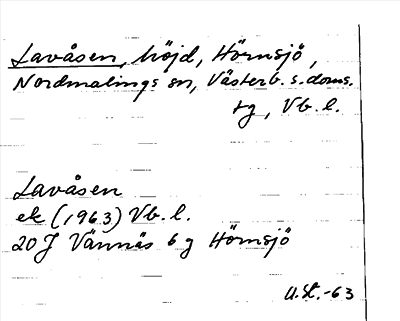 Lavåsen, höjd, Hörnsjö,
Nordmalings sn, Västerb. s. doms.
tg, Vb. l.
Lavåsen
ek (1963) Vb. l.
20 J Vännäs 6 g Hörnsjö
U.St.-63